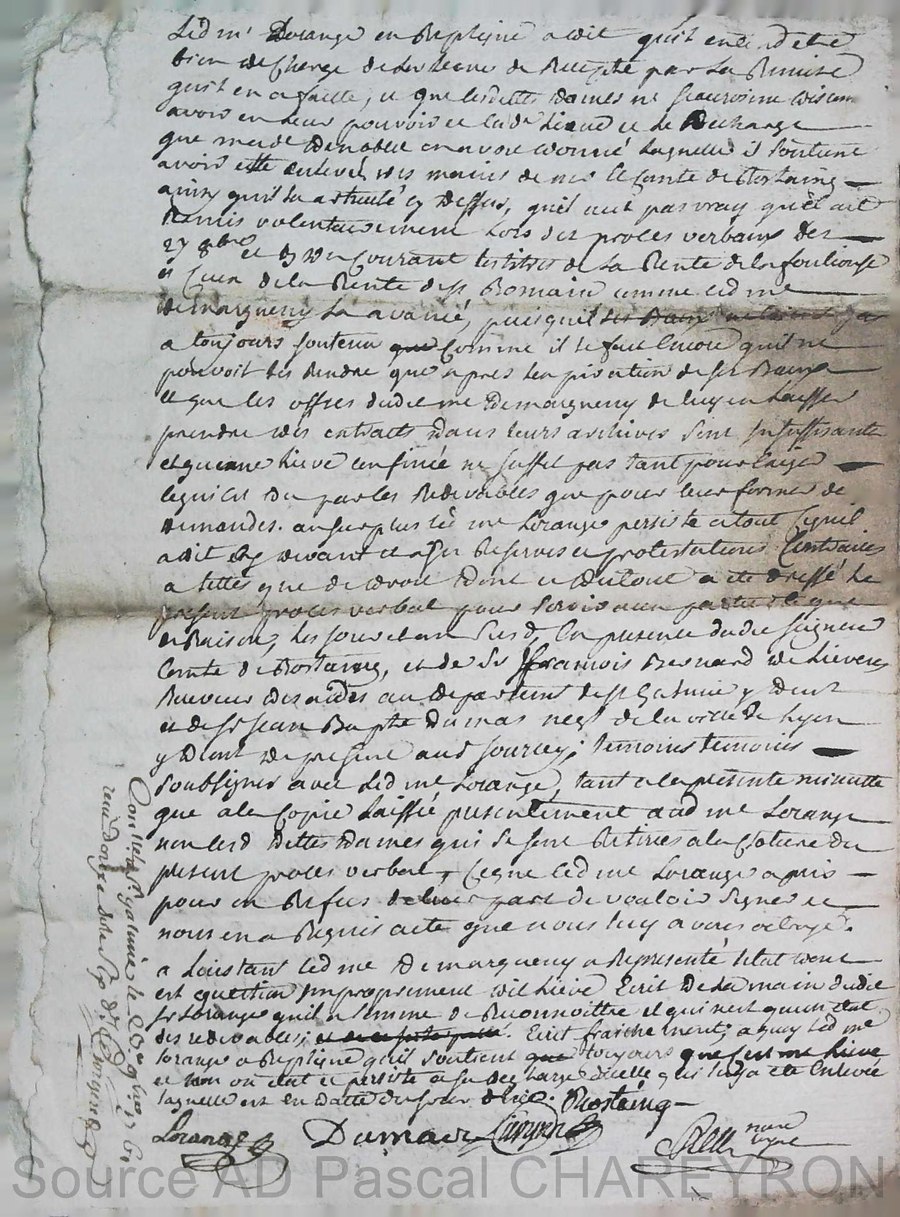 Led me Lorange en Replique a dit quil entend etre
bien décharge de la Lieve de Recepte par la Remise
quil en a faitte, et que lesdittes Dames ne scauroient
avoir en leur pouvoir et la de Lieve et la décharge
que made Denoble en avoit donné laquelle il soutient
avoir été enlevée des mains de mr le Comte de Rostaing
ainsy quil la articulé cy dessus, quil nest pas vray quil ait
Remis volontairement lors des proces verbaux des
27 8bre et du Courant les titres de la Rente de la fouliouse
et Ceux de la Rente de St Romain comme led me
Demargueny la avancé, puisquil
a toujours soutenu Comme il le fait Encore quil ne
pouvoit les Rendre que apres l'expiration de ses Baux
et que les offres dudit me Demargueny de luy en laisser
prendre des extraits dans leurs archives sont insuffisantes
et quune Lieve confinée ne suffit pas tant pour exiger
ce qui est du par les Redevables que pour leur former de
demandes. au surplus led me Lorange persiste a tout ce quil
a dit cy devant et a ses Reserves et protestations Contraires
a telles que de droit dont et du tout a eté dressé le
present proces verbal pour servir aux parties ce que
de Raison, les jour et an susd, En presence dudit seigneur
Comte de Rostaing, et de Sr françois Bernard de Lieveres
Receveur des aides au departement de St Galmier y demt
et de Sr Jean Bapte Dumas negt de la ville de Lyon
y demt de present aud Sourcy; temoins temoins
soubsignes avec led me Lorange, tant a la presente minutte
que a la Copie Laissée presentement aud me Lorange
non lesd dittes Dames qui se sont Retirées a la Cloture du
present proces verbal, Ce que led me Lorange a pris
pour un Refus de leur part de vouloir signer et
nous en a Requis acte que nous luy avons octroyé.
a Linstant led me Demargueny a Representé letat dont
est question improprement dit Lieve Ecrit de la main dudit
Sr Lorange quil a Somme de Reconnoittre et qui nest quun Etat
des redevables, Ecrit fraichement, a quoy led me
Lorange a Repliqué quil soutient toujours que cest une Lieve
et non un etat et persiste a sa decharge dicelle qui luy a ete Enlevée
laquelle est en datte du jour dhier. Rostaing
Lorange Dumas
nore
Conlle a St Galmier le
Source AD Pascal CHAREYRON